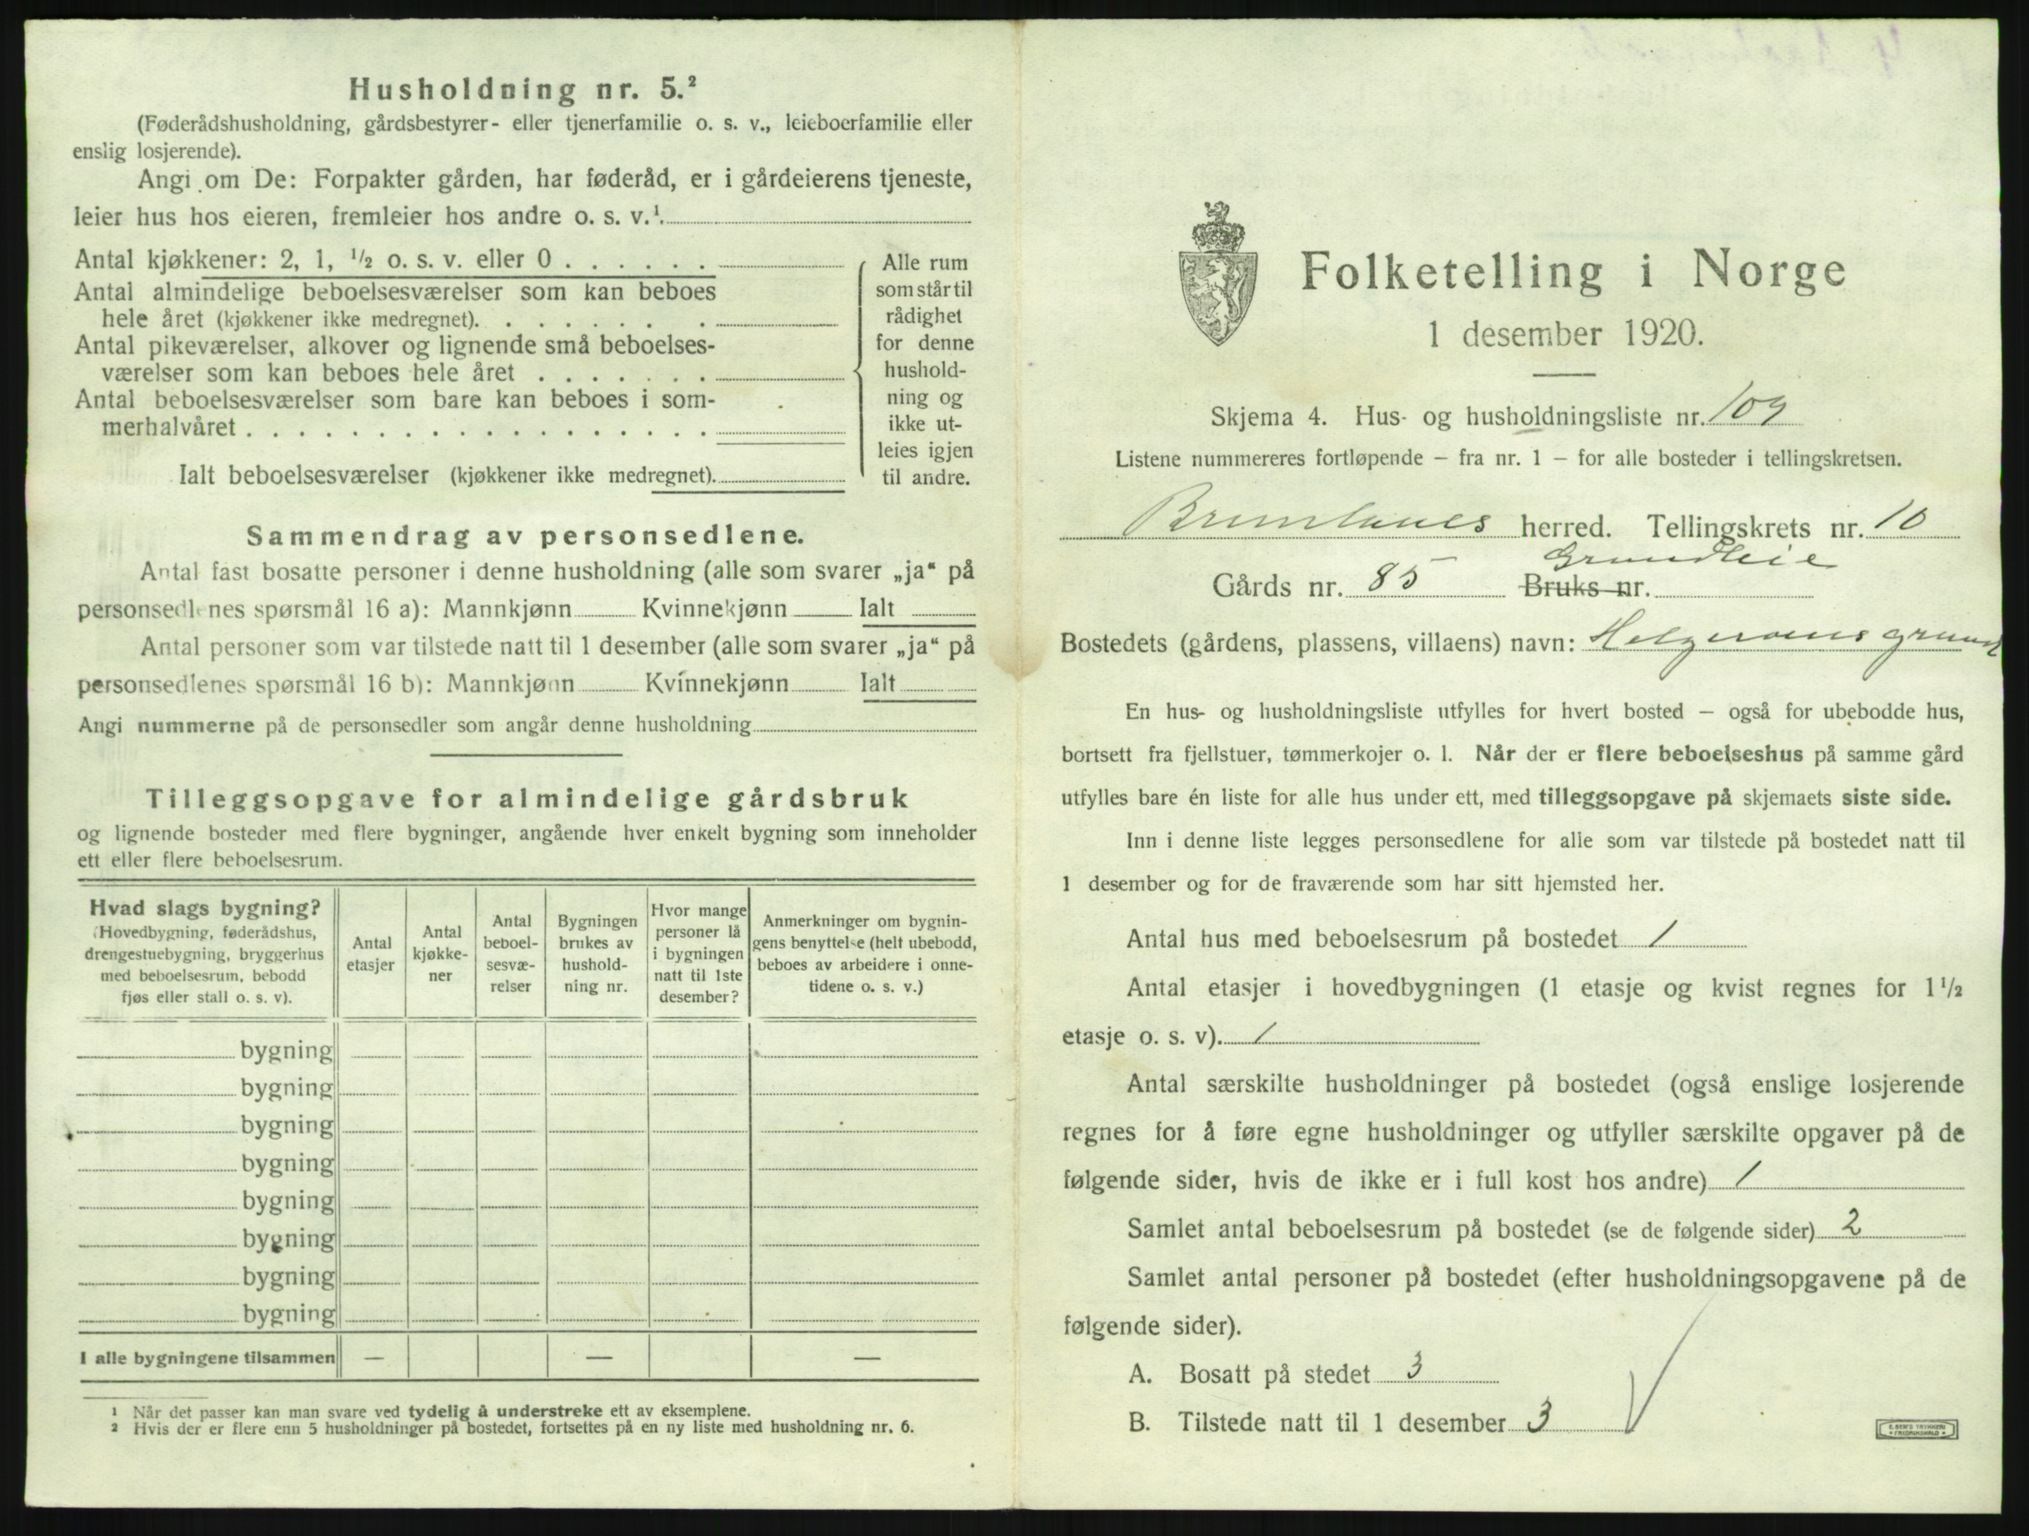 Husholdning nr. 5.²
(Føderådshusholdning, gårdsbestyrer- eller tjenerfamilie o. s. v., leieboerfamilie eller
enslig losjerende).
Angi om De: Forpakter gården, har føderåd, er i gårdeierens tjeneste,
leier hus hos eieren, fremleier hos andre o. s. v.¹.
Antal kjøkkener: 2, 1, ½ o. s. v. eller 0 . . . . . .
Antal almindelige beboelsesværelser som kan beboes
hele året (kjøkkener ikke medregnet). . . . . . . .
Antal pikeværelser, alkover og lignende små beboelses-
værelser som kan beboes hele året . . . . . . .
Antal beboelsesværelser som bare kan beboes i som-
merhalvåret . . . . . . . . . . . . . . . . . .
Ialt beboelsesværelser (kjøkkener ikke medregnet).
Alle rum
som står til
rådighet
for denne
hushold-
ning og
ikke ut-
leies igjen
til andre.
Sammendrag av personsedlene.
Antal fast bosatte personer i denne husholdning (alle som svarer „ja“ på
personsedlenes spørsmål 16 a): Mannkjønn Kvinnekjønn Ialt
Antal personer som var tilstede natt til 1 desember (alle som svarer „ja“ på
personsedlenes spørsmål 16 b): Mannkjønn Kvinnekjønn Ialt
Angi nummerne på de personsedler som angår denne husholdning
Tilleggsopgave for almindelige gårdsbruk
og lignende bosteder med flere bygninger, angående hver enkelt bygning som inneholder
ett eller flere beboelsesrum.
Hvad slags bygning?
(Hovedbygning, føderådshus,
drengestuebygning, bryggerhus
med beboelsesrum, bebodd
fjøs eller stall o. s. v).
Antal
etasjer
Antal
kjøkke-
ner
Antal
beboel-
sesvæ-
relser
Bygningen
brukes av
hushold-
ning nr.
Hvor mange
personer lå
i bygningen
natt til 1ste
desember?
Anmerkninger om bygnin-
gens benyttelse (helt ubebodd,
beboes av arbeidere i onne-
tidene o. s. v.)
bygning
bygning
bygning
bygning
bygning
bygning
bygning
bygning
I alle bygningene tilsammen — — —
¹ Når det passer kan man svare ved tydelig å understreke ett av eksemplene.
² Hvis der er flere enn 5 husholdninger på bostedet, fortsettes på en ny liste med husholdning nr. 6.
Folketelling i Norge
1 desember 1920.
Skjema 4. Hus- og husholdningsliste nr. 109
Listene nummereres fortløpende — fra nr. 1 — for alle bosteder i tellingskretsen.
Brunlanes herred. Tellingskrets nr. 10
Grundleie
Gårds nr. 85 Bruks nr.
Bostedets (gårdens, plassens, villaens) navn: Helgeroens grund
En hus- og husholdningsliste utfylles for hvert bosted — også for ubebodde hus,
bortsett fra fjellstuer, tømmerkojer o. l. Når der er flere beboelseshus på samme gård
utfylles bare én liste for alle hus under ett, med tilleggsopgave på skjemaets siste side.
Inn i denne liste legges personsedlene for alle som var tilstede på bostedet natt til
1 desember og for de fraværende som har sitt hjemsted her.
Antal hus med beboelsesrum på bostedet 1
Antal etasjer i hovedbygningen (1 etasje og kvist regnes for 1½
etasje o. s. v). 1
Antal særskilte husholdninger på bostedet (også enslige losjerende
regnes for å føre egne husholdninger og utfyller særskilte opgaver på de
følgende sider, hvis de ikke er i full kost hos andre) 1
Samlet antal beboelsesrum på bostedet (se de følgende sider) 2
Samlet antal personer på bostedet (efter husholdningsopgavene på de
følgende sider).
A. Bosatt på stedet 3
B. Tilstede natt til 1 desember 3